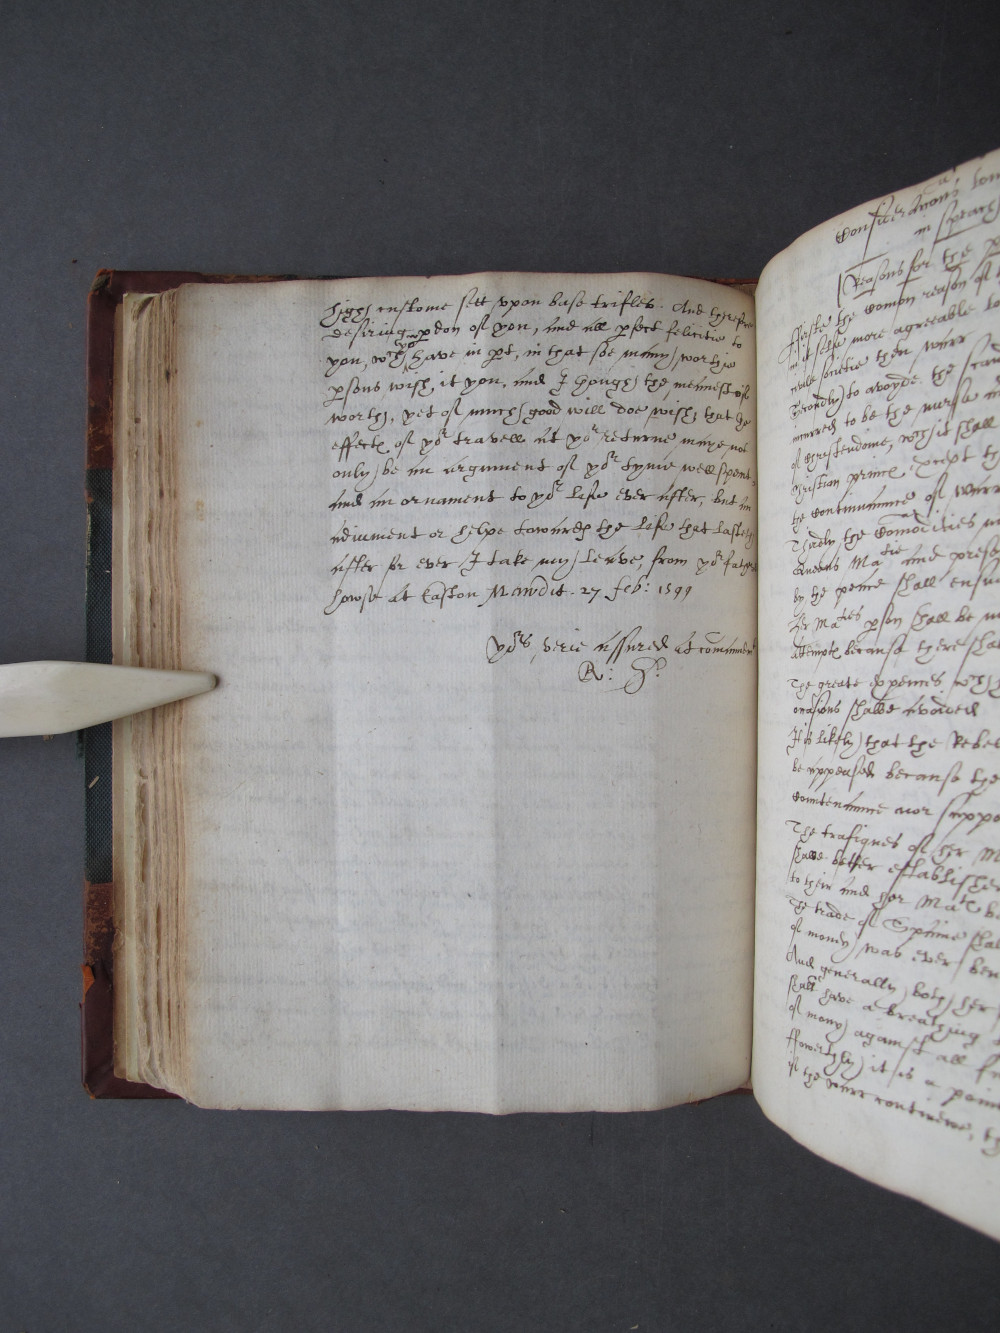 high custome sett vpon base trifles. And therfore
desiring pdon of you, and all pfect felicitie to
you, wch you have in pt, in that soe many worthie
psons wish it you, and I though the meanest of
worth, yet of much good will doe wish that the
effects of yor travell at yor returne maye not
only be an argument of yor tyme well spent,
and an ornament to yor life ever after, but an
adiument or helpe towards the life that lasteth
after for ever I take my leave, from yor fathers
howse at Easton Mawdit. 27 Feb: 1599
yors verie assured at commaun
R: H:
Considerations
in speach
Reasons for the
Firste the Comon reason of
in it selfe more agreeable to
civile societie then warr
Secondly to avoyde the
incurred to be the nurse
of Christendome, wch it shall
Christian prince except
the Continuance of Warr
Thirdly the Comodities
Queens Matie and
by the peace shall ensue
Her Maties pson shall be
attempts because there shal
The great expences wch
occasions shalbe avoided
It is likely that the Rebel
be appeased because the
Countenance nor suppo
The trafiques of her M
shalbe better established
to their and her Maties
The trade of Spaine shal
of money was ever ben
And generally both her
shall have a breathing
of mony against all
Fowerthly it is a poin
if the warr continewe, th